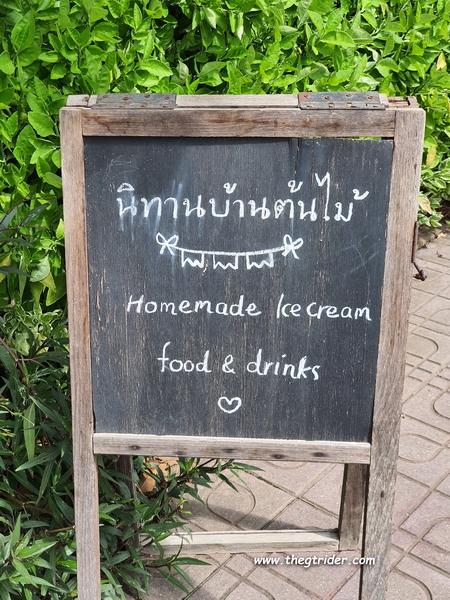 นิทานบ้านต้นไม้
Homemade Ice cream
food & drinks
www.thegtrider.com